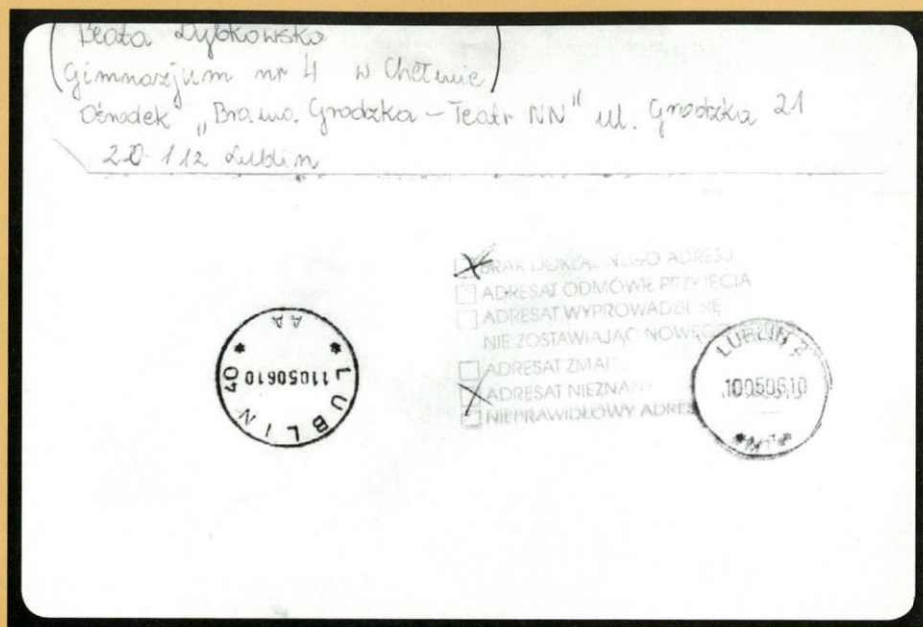 Beata Dybkowska
(Gimnazjum nr 4 w Chełmie)
Ośrodek „Brama Grodzka – Teatr NN" ul. Grodzka 21
20-112 Lublin
BRAK DOKŁADNEGO ADRESU
ADRESAT ODMÓWIŁ PRZYJĘCIA
ADRESAT WYPROWADZIŁ SIĘ
NIE ZOSTAWIAJĄC NOWEGO
ADRESAT ZMAR
ADRESAT NIEZNANY
NIEPRAWIDŁOWY ADRES
LUBLIN 40
11050610
AA
LUBLIN 2
10050610